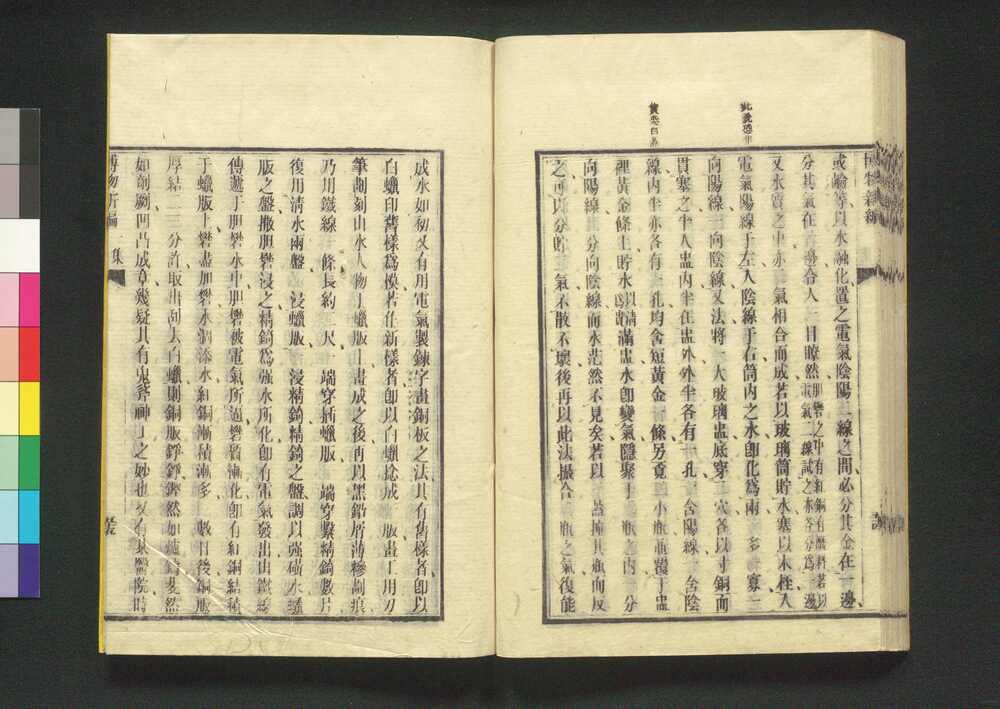 或鹼等以水融化置之電氣陰陽二線之間必分其金在一邊
分其氣在一邊令人一目瞭然胆礬之中有紅銅有酸料若以電氣二線試之亦各分為一邊
又水質之中亦二氣相合而成若以玻璃筒貯水塞以木栓入
電氣陽線于左入陰線于右筒内之水卽化為兩
向陽線一向陰線又法將一大玻璃盅底穿二穴各以寸銅而
貫塞之半入盅内半在盅外外半各有一孔一舍陽線一舍陰
線内半亦各有一孔均舍短黃金一條另覓二小瓶覆于盅
裡黃金條上貯水滿盅水卽變氣隱聚于二瓶之内一分
向陽線一分向陰線而水茫然不見矣若以
之可以分貯二氣不散不壞後再以此法撮合二瓶之氣復能
成水如初又有用電氣製鍊字畫銅板之法其有舊樣者卽以
白蠟印舊樣為模若作新樣者卽以白蠟捻成一版畫工用刀
筆劃刻山水人物于蠟版上畫成之後再以黑鉛屑薄糝劃痕
乃用鐵線一條長約一尺一端穿插蠟版一端穿繫精錡數片
復用清水兩盤一浸蠟版一浸精錡精錡之盤調以強磺水蠟
版之盤撒胆礬浸之精錡為強水所化卽有電氣發出由鐵線
傳遞于胆礬水中胆礬被電氣所逼礬質漸化卽有紅銅結積
于蠟版上礬盡加礬水涸添水紅銅漸積漸多數日後銅版
厚結二三分許取出刮去白蠟則銅版錚錚
如剞劂凹凸成章幾疑其有鬼斧神工之妙也又有
博物新編 一集